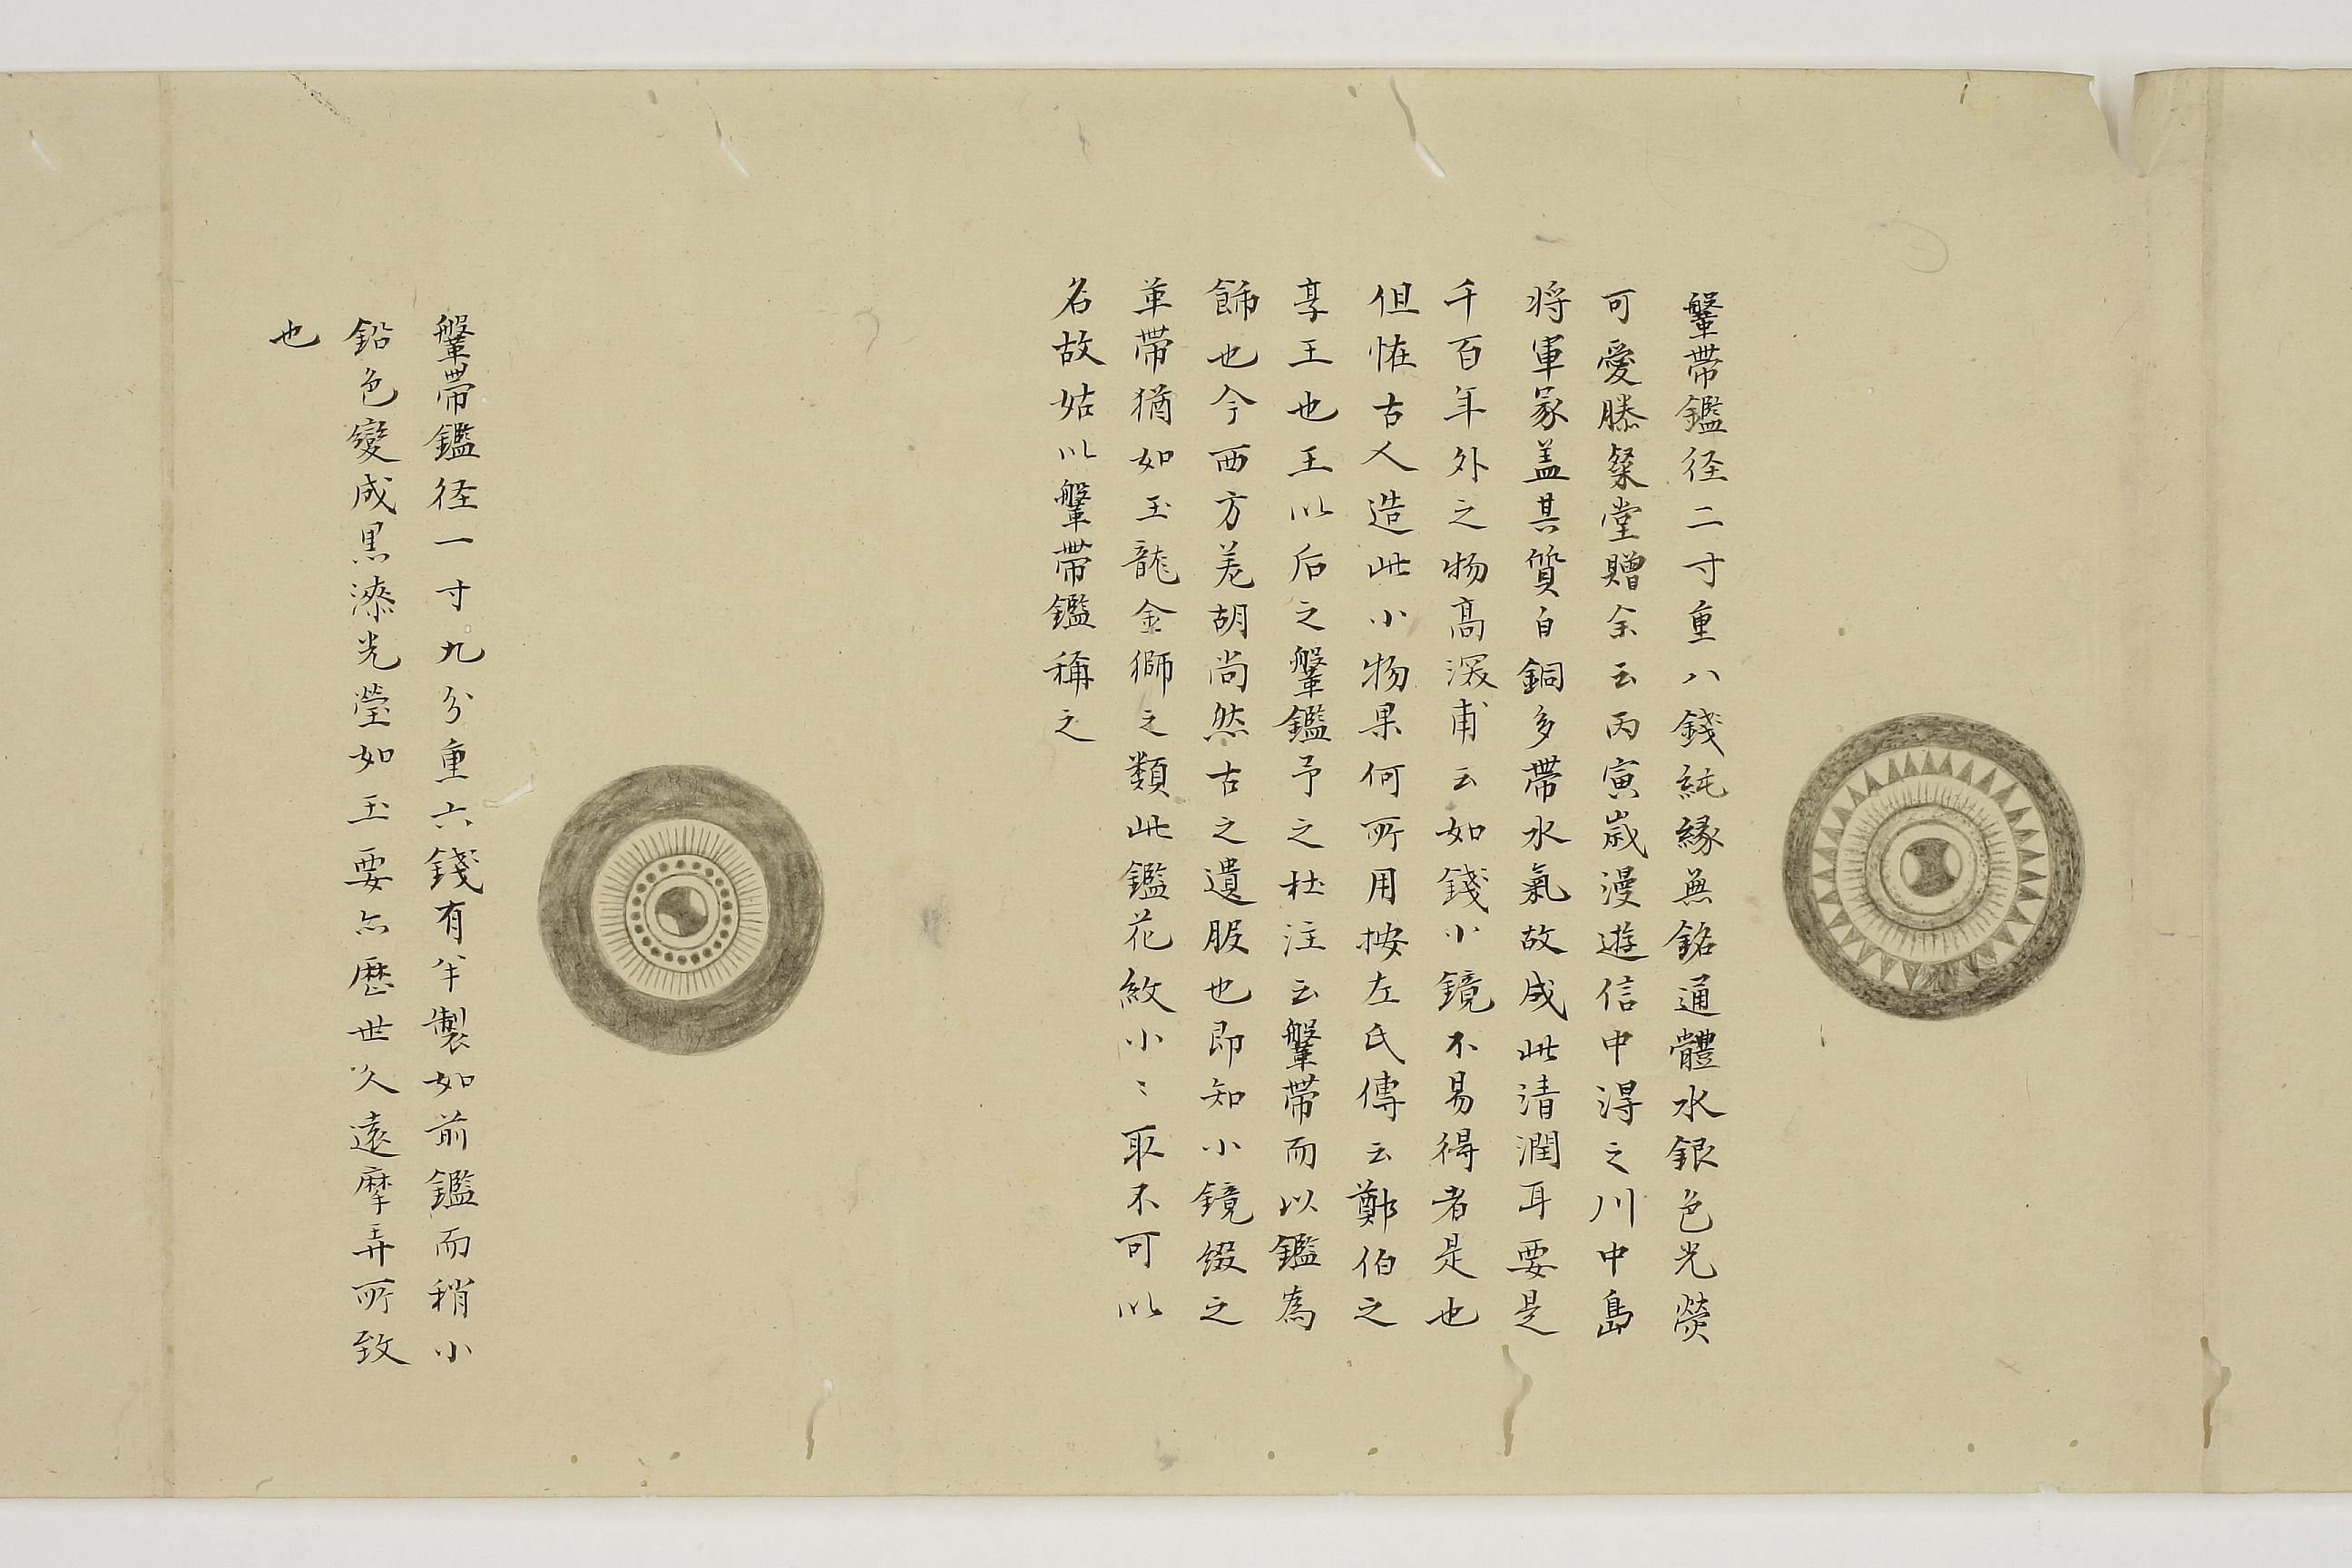 鞶帶鑑径二寸重八錢純縁無銘通體水銀色光熒
可愛滕粲堂贈余云丙寅歳漫遊信中淂之川中島
将軍冢盖其質白銅多帶水氣故成此清潤耳要是
千百年外之物髙深甫云如錢小鏡不易得者是也
但恠古人造此小物果何所用按左氏傳云鄭伯之
享王也王以后之鞶鑑予之杜注云鞶帶而以鑑為
飾也今西方羌胡尚然古之遺服也即知小鏡綴之
革帶猶如玉龍金獅之類此鑑花紋小〻取不可以
名故姑以鞶帶鑑稱之
鞶帶鑑径一寸九分重六錢有半製如前鑑而稍小
鉛色變成黒漆光瑩如玉要亦歴世久遠摩弄所致
也